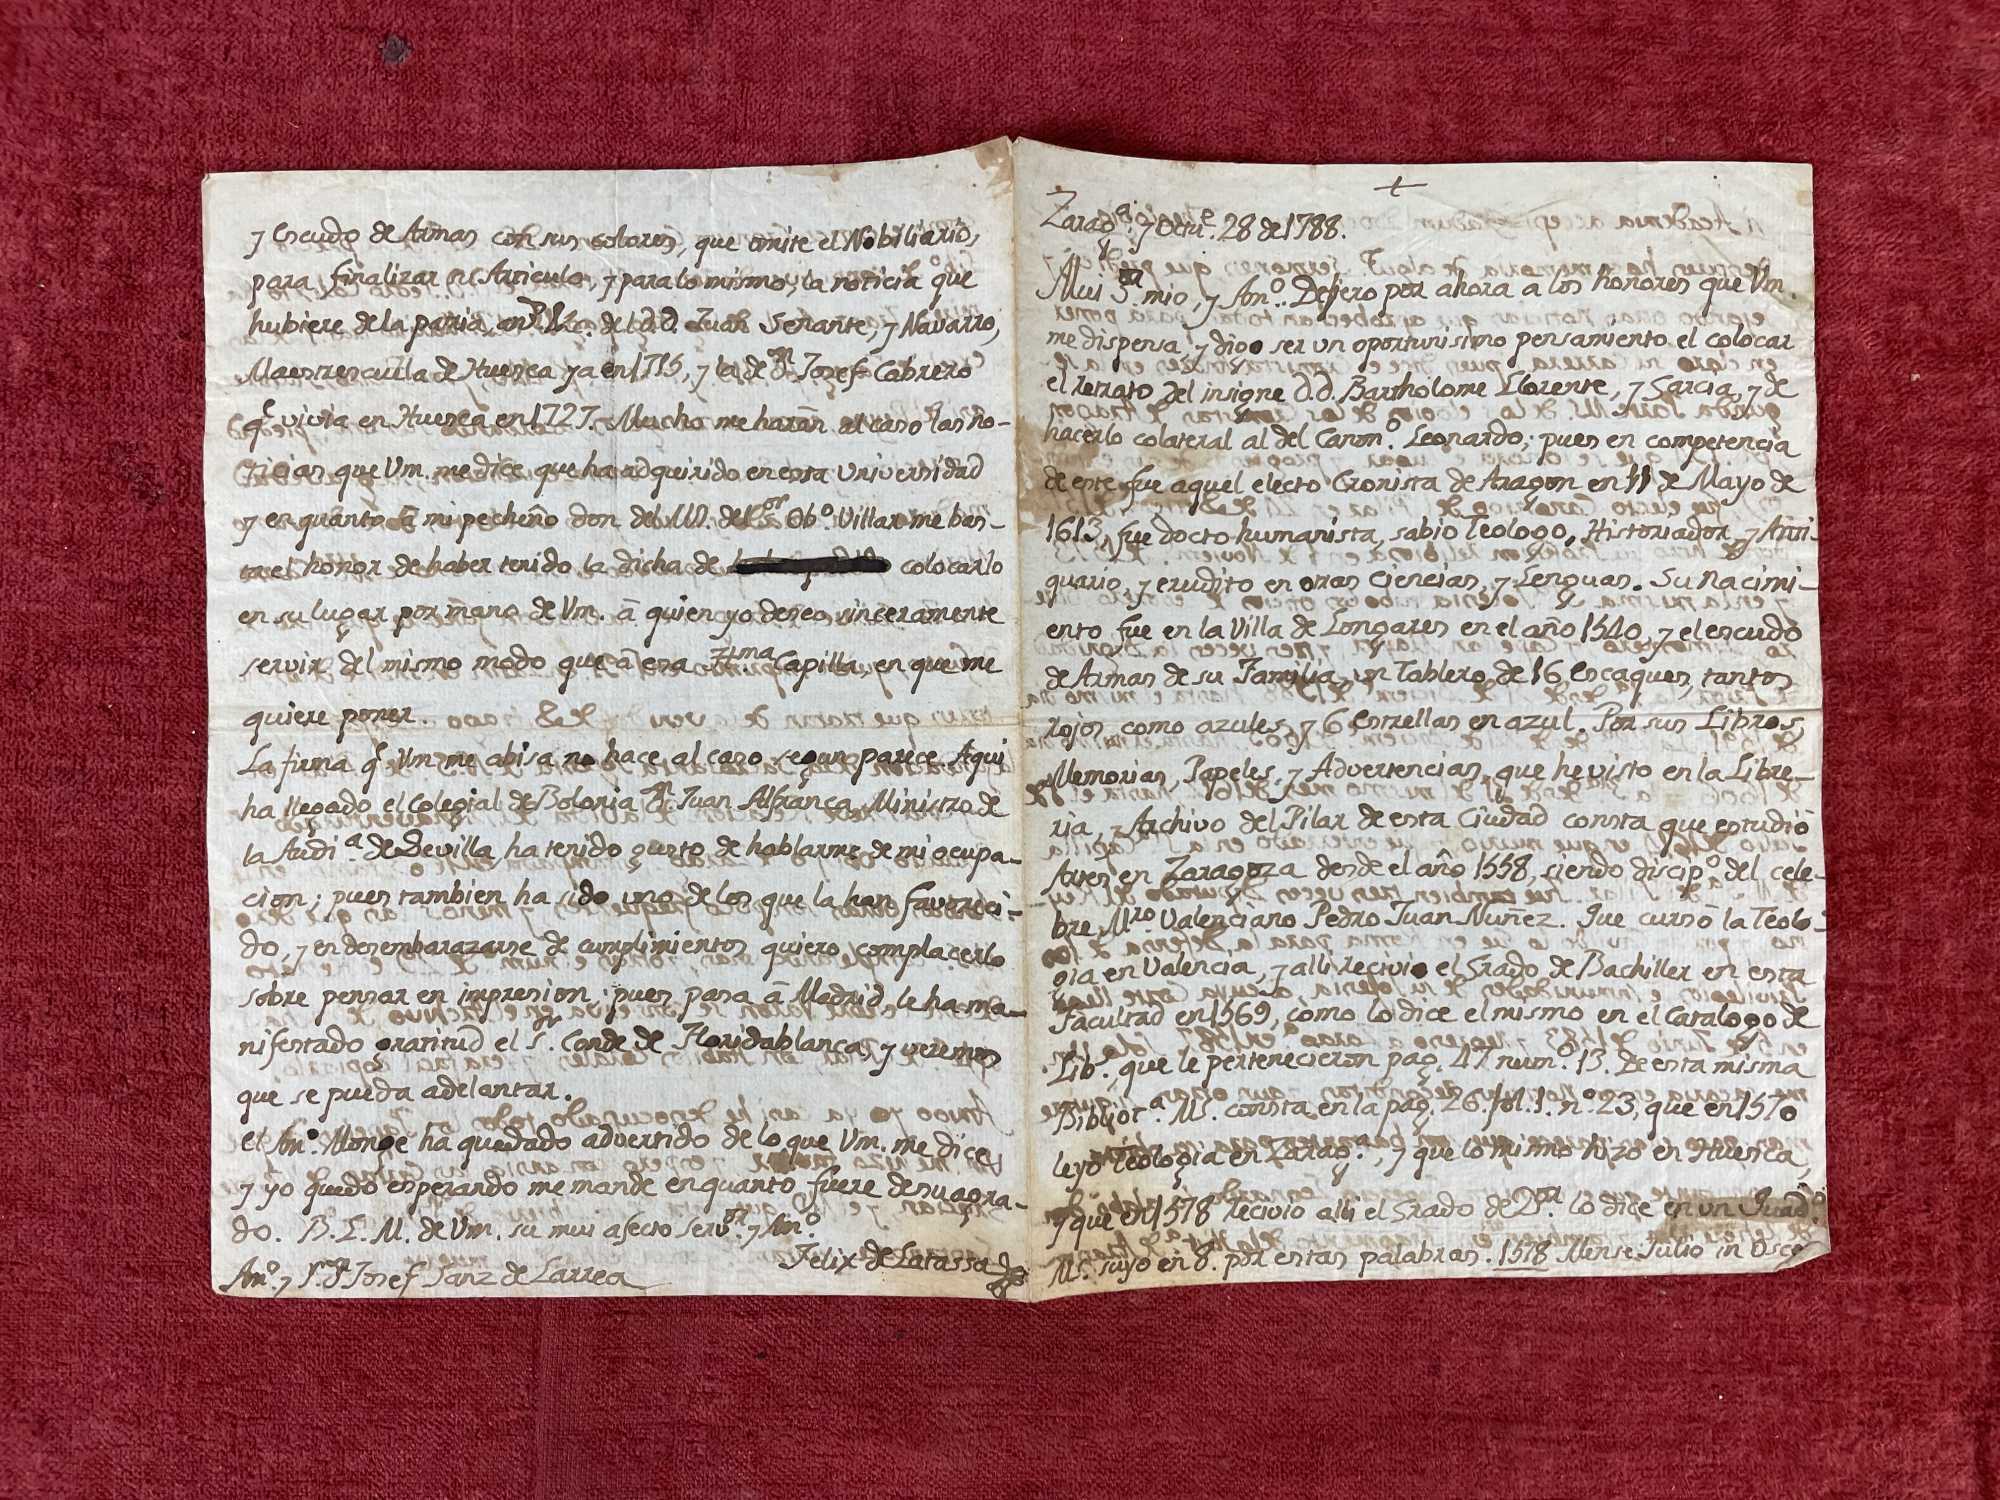 y Escudo de Armas con sus colores, que omite el Nobiliario,
para finalizar su Articulo, y para lo mismo, la noticia que
hubiere de la patria, de D. D. Juan Señante, y Navarro,
Maestrescuela de Huesca ya en 1715, y la de Dn. Josef Cabrero
q̃ vivia en Huesca en 1727. Mucho me harán al caso las no-
ticias que Vm. me dice que ha adquirido en esta Universidad
y en quanto â mi pecheño don del del Sor Obo. Villar me bas-
ta el honor de haber tenido la dicha de colocarlo
en su lugar por mano de Vm. â quien yo deseo sinceramente
servir del mismo modo que â esa Capilla, en que me
quiere poner.
La firma q̃ Vm. me abisa no hace al caso segun parece. Aqui
ha llegado el Colegial de Bolonia Dn. Juan Alfranca Ministro de
la Audi.a de Sevilla, ha tenido gusto de hablarme de mi ocupa-
cion; pues tambien ha sido uno de los que la han favoreci-
do, y en desembarazarse de cumplimientos quiero complacerlo
sobre pensar en impresion; pues pasa â Madrid, le ha ma-
nifestado gratitud el Sr. Conde de Floridablanca, y veremos
que se pueda adelantar.
el Amo. Monge ha quedado advertido de lo que Vm. me dice
y yo quedo esperando me mande en quanto fuere de su agra-
do. B. L. M. de Vm. su mui afecto servor. y Amo.
Felix de Latassa
Amo. y Sr. Dn. Josef Sanz de Larrea
+
Zarag.a y Octue. 28 de 1788.
Mui Sor. mio, y Amo. Defiero por ahora a los honores que Vm.
me dispensa, y digo ser un oportunisimo pensamiento el colocar
el retrato del insigne D. D. Bartholome Llorente, y Garcia, y de
hacerlo colateral al del Canono. Leonardo; pues en competencia
de este fue aquel electo Cronista de Aragon en 11 de Mayo de
1613, fue docto humanista, sabio Teologo, Historiador, y Anti-
quario, y erudito en otras Ciencias, y Lenguas. Su nacimi-
ento fue en la Villa de Longares en el año 1540, y el escudo
de Armas de su Familia, un Tablero de 16 Escaques, tantos
rojos como azules, y 6 estrellas en azul. Por sus Libros,
Memorias, Papeles, y Advertencias, que he visto en la Libre-
ria, y Archivo del Pilar de esta Ciudad consta que estudió
Artes en Zaragoza desde el año 1558, siendo discipo. del cele-
bre Mro. Valenciano Pedro Juan Nuñez. Que cursó la Teolo-
gia en Valencia, y alli recivio el Grado de Bachiller en esta
Facultad en 1569, como lo dice el mismo en el Catalogo de
Libs. que le pertenecieron pag. 47 num.o 13. De esta misma
Bibliot.a Ms. consta en la pag. 26. fol. 1. n.o 23, que en 1570
leyó Teologia en Zarag.a, y que lo mismo hizo en Huesca,
y que en 1578 recivio alli el Grado de Dor. lo dice en un Quad.o
Ms. suyo en 8. por estas palabras. 1578 Mense Julio in Osce